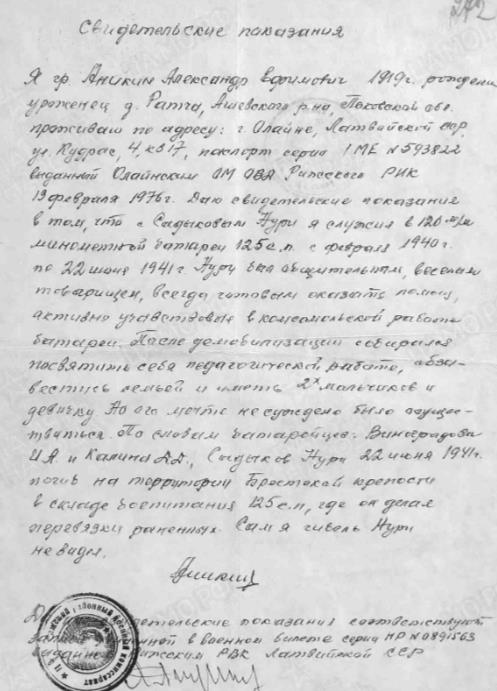 Свидетельские показания
Я гр Аникин Александр Ефимович 1919г. рождения
уроженец д. Ратча, Ашевского р-на, Псковской обл.
проживаю по адресу: г. Олайне, Латвийской ССР,
ул. Кудрас, 4, кв17, паспорт серия I МЕ N 593822
выданный Олайнским ОМ ОВД Рижского РИК
19 февраля 1976г. Даю свидетельские показания
в том, что с Садыковым Нури я служил в 120 м/м
минометной батареи 125 с.п. с февраля 1940г.
по 22 июня 1941г. Нури был общительным, веселым
товарищем, всегда готовым оказать помощь,
активно участвовал в комсомольской работе
батареи. После демобилизации собирался
посвятить себя педагогической работе, обза-
вестись семьей и иметь 2х мальчиков и
девочку. Но его мечте не суждено было осущес-
твиться. По словам батарейцев: Виноградова
И.А. и Калина Д.Д., Садыков Нури 22 июня 1941г.
погиб на территории Брестской крепости
в складе боепитания 125 с.п., где он делал
перевязки раненных. Сам я гибель Нури
не видел.
Аникин
свидетельские показания соответствуют
в военном билете серии НР N 0891563
Рижским РВК Латвийской ССР